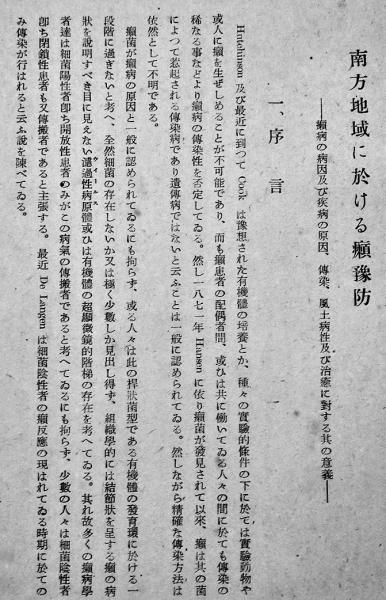 南方地域に於ける癩豫防
――癩病の病因及び疾病の原因、傳染、風土病性及び治癒に對する其の意義――
一、序言
Hutchingon 及び最近に到つて Cook は豫想された有機體の培養とか、種々の實驗的條件の下に於ては實驗動物や
或人に癩を生ぜしめることが不可能であり、而も癩患者の配偶者間、或ひは共に働いてゐる人々の間に於ても傳染の
稀なる事などより癩病の傳染性を否定してゐる。然し一八七一年 Hansen に依り癩菌が發見されて以來、癩は其の菌
によつて惹起される傳染病であり遺傳病ではないと云ふことは一般に認められてゐる。然しながら精確な傳染方法は
依然として不明である。
癩菌が癩病の原因と一般に認められてゐるにも拘らず、或る人々は此の桿狀菌型である有機體の發育環に於ける一
段階に過ぎないと考へ、全然細菌の存在しないか又は極く少數しか見出し得ず、組織學的には結節狀を呈する癩の病
狀を說明すべき目に見えない濾過性病原體或ひは有機體の超顯微鏡的階梯の存在を考へてゐる。其れ故多くの癩病學
者達は細菌陽性者卽ち開放性患者のみがこの病氣の傳搬者であると考へてゐるにも拘らず、少數の人々は細菌陰性者
卽ち閉鎖性患者も又傳搬者であると主張する。最近 De Langen は細菌陰性者の癩反應の現はれてゐる時期に於ての
み傳染が行はれると云ふ說を陳べてゐる。